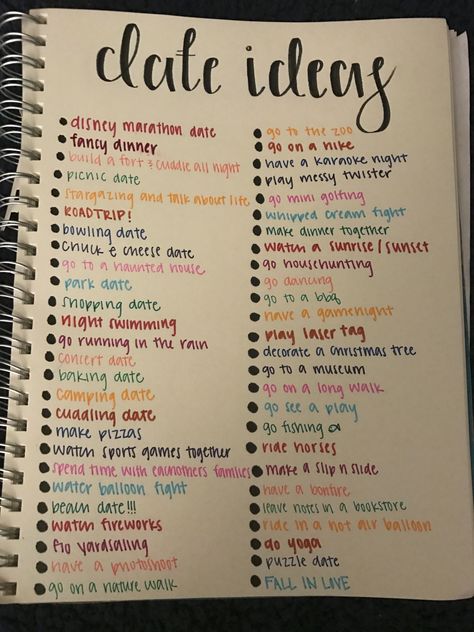 date ideas
• disney marathon date
• fancy dinner
• build a fort & cuddle all night
• picnic date
• stargazing and talk about life
• ROADTRIP!
• bowling date
• chuck e cheese date
• go to a haunted house
• park date
• shopping date
• night swimming
• go running in the rain
• concert date
• baking date
• camping date
• cuddling date
• make pizzas
• watch sports games together
• spend time with eachothers families
• water balloon fight
• beach date!!!
• watch fireworks
• go yardsaling
• have a photoshoot
• go on a nature walk
• go to the zoo
• go on a hike
• have a karaoke night
• play messy twister
• go mini golfing
• whipped cream fight
• make dinner together
• watch a sunrise/sunset
• go househunting
• go dancing
• go to a bbq
• have a gamenight
• play laser tag
• decorate a christmas tree
• go to a museum
• go on a long walk
• go see a play
• go fishing
• ride horses
• make a slip n slide
• have a bonfire
• leave notes in a bookstore
• ride in a hot air balloon
• do yoga
• puzzle date
• FALL IN LOVE